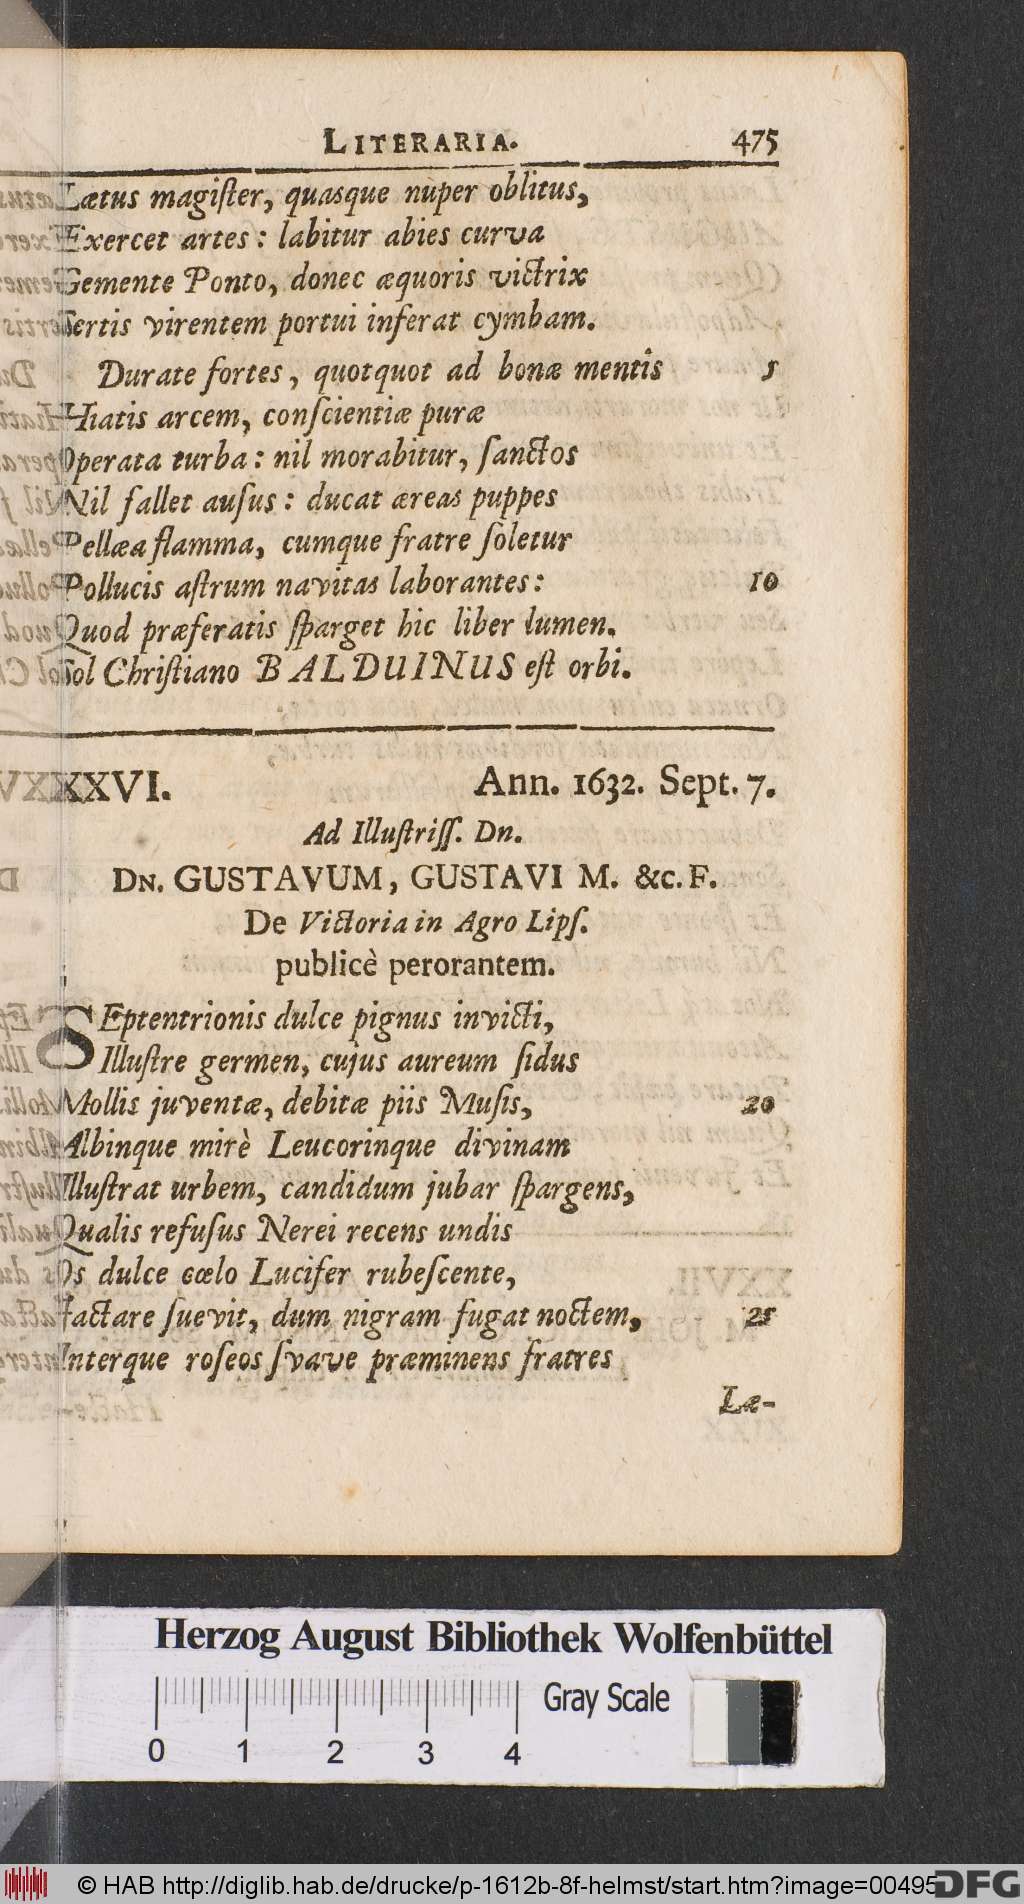 LITERARIA. 475
Lætus magiſter, quasque nuper oblitus,
Exercet artes: labitur abies curva
Gemente Ponto, donec æquoris victrix
Sertis virentem portui inferat cymbam.
Durate fortes, quotquot ad bonæ mentis 5
Hiatis arcem, conſcientiæ puræ
Operata turba: nil morabitur, ſanctos
Nil fallet auſus: ducat æreas puppes
Pellæa flamma, cumque fratre ſoletur
Pollucis aſtrum navitas laborantes: 10
Quod præferatis ſparget hic liber lumen.
Sol Chriſtiano BALDUINUS eſt orbi.
XXVI. Ann. 1632. Sept. 7.
Ad Illuſtriſſ. Dn.
DN. GUSTAVUM, GUSTAVI M. &c. F.
De Victoria in Agro Lipſ.
publicè perorantem.
SEptentrionis dulce pignus invicti,
Illuſtre germen, cujus aureum ſidus
Mollis juventæ, debitæ piis Muſis, 20
Albinque mirè Leucorinque divinam
Illuſtrat urbem, candidum jubar ſpargens,
Qualis refuſus Nerei recens undis
Os dulce cœlo Lucifer rubeſcente,
Jactare ſuevit, dum nigram fugat noctem, 25
Interque roſeos ſvave præminens fratres
Læ-
Herzog August Bibliothek Wolfenbüttel
Gray Scale
0 1 2 3 4
© HAB http://diglib.hab.de/drucke/p-1612b-8f-helmst/start.htm?image=00495
DFG